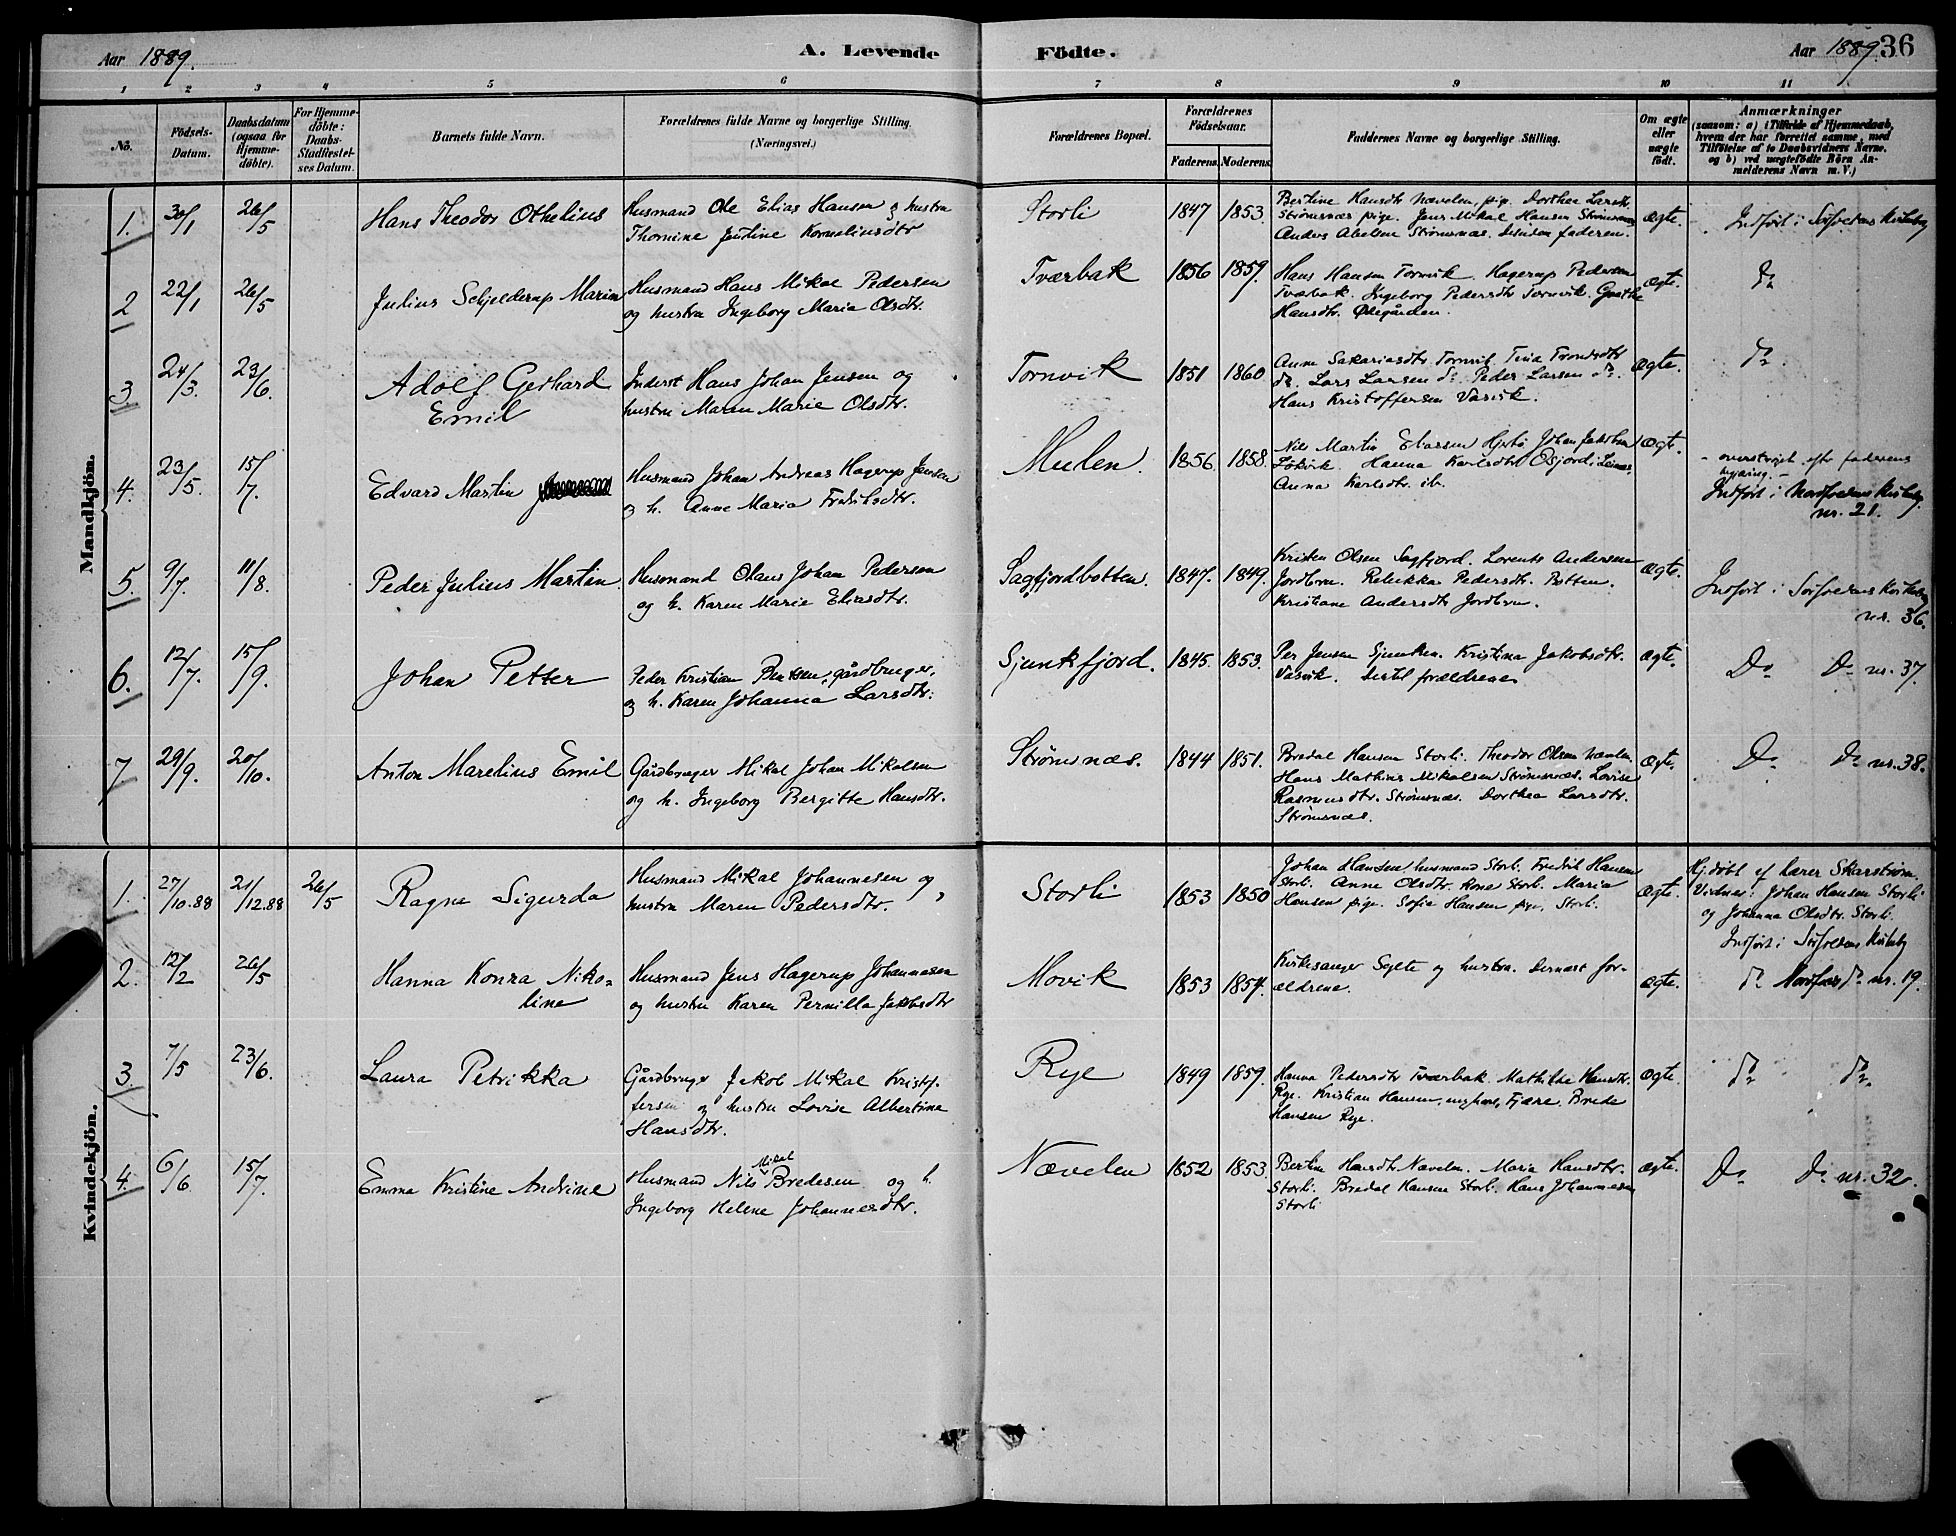 Aar 1889.
A. Levende
Födte.
Aar 1889.
36
1 2 3 4 5 6 7 8 9 10 11
No.
Födsels-
Datum.
Daabsdatum
(ogsaa for
Hjemme-
döbte).
For Hjemme-
döbte:
Daabs-
Stadfæstel-
ses Datum.
Barnets fulde Navn.
Forældrenes fulde Navne og borgerlige Stilling.
(Næringsvei.)
Forældrenes Bopæl.
Forældrenes
Födselsaar.
Faderens.
Moderens.
Faddernes Navne og borgerlige Stilling.
Om ægte
eller
uægte
født.
Anmærkninger
(saasom: a) i Tilfælde af Hjemmedaab,
hvem der har forrettet samme, med
Tilföielse af to Daabsvidners Navne,
og b) ved uægtefödte Börn An-
melderens Navn m. V.)
Mandkjön.
1. 30/1 26/5
Hans Theodor Othelius
Husmand Ole Elias Hansen og hustru
Thomine Justine Kornelinsdtr
Storli
1847 1853.
Bertine Hansdtr Nævelen, pige. Dorthea Larsdtr.
Strømsnæs pige. Jens Mikal Hansen Strømsnæs
Anders Abelsen Strømsnæs. Desuden faderen.
Ægte.
Indført i Sørfoldens Kirkebog
2 22/1 26/5
Julius Schjelderup Marin
Husmand Hans Mikal Pedersen
og hustru Ingeborg Maria Olsdtr.
Tværbak
1856 1859.
Hans Hansen Tornvik. Hagerup Pedersen
Tværbak. Ingeborg Pedersdtr Tornvik. Grethe
Hansdtr. Ødegården.
Ægte.
do
3 24/3. 23/6.
Adolf Gerhard
Emil
Inderst Hans Johan Jensen og
hustru Maren Marie Olsdtr.
Tornvik
1851 1860
Anne Sakariasdtr Tornvik Tina Trondsdtr
do. Lars Larsen do. Peder Larsen do.
Hans Kristoffersen Vasvik.
Ægte.
do.
4. 23/5. 15/7.
Edvard Martin
Husmand Johan Andreas Hagerup Jensen
og h. Anne Maria Fredriksdtr.
Mulen.
1856. 1858.
Nils Martin Eliassen Hjertø Johan Jakobsen
Løkvik. Hanna Karlsdtr Osjord i Leines.
Anna Karlsdtr. ib.
Ægte.
- overstrøget efter faderens
Indført i Nordfoldens Kirkebog.
nr. 21.
5. 9/7. 11/8.
Peder Julius Martin
Husmand Olaus Johan Pedersen
og h. Karen Marie Eliasdtr.
Sagfjordbotten.
1847. 1849.
Kristen Olsen Sagfjord. Lorents Andersen
Jordbru. Rebekka Pedersdtr. Botten.
Kristiane Andersdtr Jordbru.
Ægte.
Indført i Sørfoldens Kirkebog
nr. 36.
6. 12/7. 15/9.
Johan Petter
Peder Kristian Bentsen, gårdbruger,
og h. Karen Johanna Larsdtr.
Sjunkfjord.
1845. 1853.
Per Jensen Sjunken. Kristina Jakobsdtr.
Vasvik. Dertil forældrene
Ægte.
Do Do nr. 37.
7 29/9. 20/10.
Anton Marelius Emil
Gårdbruger Mikal Johan Mikalsen
og h. Ingeborg Bergitte Hansdtr.
Strømsnæs.
1844 1851.
Bredal Hansen Storli. Theodor Olsen Nævelen.
Hans Mathias Mikalsen Strømsnæs. Lovise
Rasmusdtr. Strømsnæs. Dorthea Larsdtr.
Strømsnæs.
Ægte.
Do Do nr. 38.
Kvindekjön.
1. 27/10.88 21/12.88 26/5
Ragna Sigurda
Husmand Mikal Johannesen og
hustru Maren Pedersdtr.
Storli
1853 1850
Johan Hansen husmand Storli. Fredrik Hansen
Storli. Anne Olsdtr. kone Storli. Maria
Hansen pige. Sofie Hansen pige, Storli.
Ægte.
Hj.døbt af lærer Skarstrøm.
Vidner: Johan Hansen Storli
og Johanna Olsdtr. Storli.
Indført i Sørfoldens Kirkebog
2. 12/2 26/5
Hanna Konra Niko-
line
Husmand Jens Hagerup Johannesen
og hustru Karen Pernilla Jakobsdtr
Movik
1853 1854.
Kirkesanger Sylte og hustru. Dernæst for-
ældrene.
ægte.
do Nordfold do nr. 19.
3. 7/5 23/6.
Laura Petrikka
Gårdbruger Jakob Mikal Kristof-
fersen og hustru Lovise Albertine
Hansdtr.
Rye
1849 1859.
Hanna Pedersdtr Tværbak. Mathilde Hansdtr.
Rye. Kristian Hansen, ungkarl, Fjære. Brede
Hansen Rye.
Ægte.
do do.
4. 6/6. 15/7.
Emma Kristine Andrine
Husmand Nils Mikal Bredesen og h.
Ingeborg Helene Johannesdtr.
Nævelen
1852 1853.
Bertine Hansdtr. Nævelen. Maria Hansdtr.
Storli. Bredal Hansen Storli. Hans Johannesen
Storli
ægte.
Do Do nr. 32.